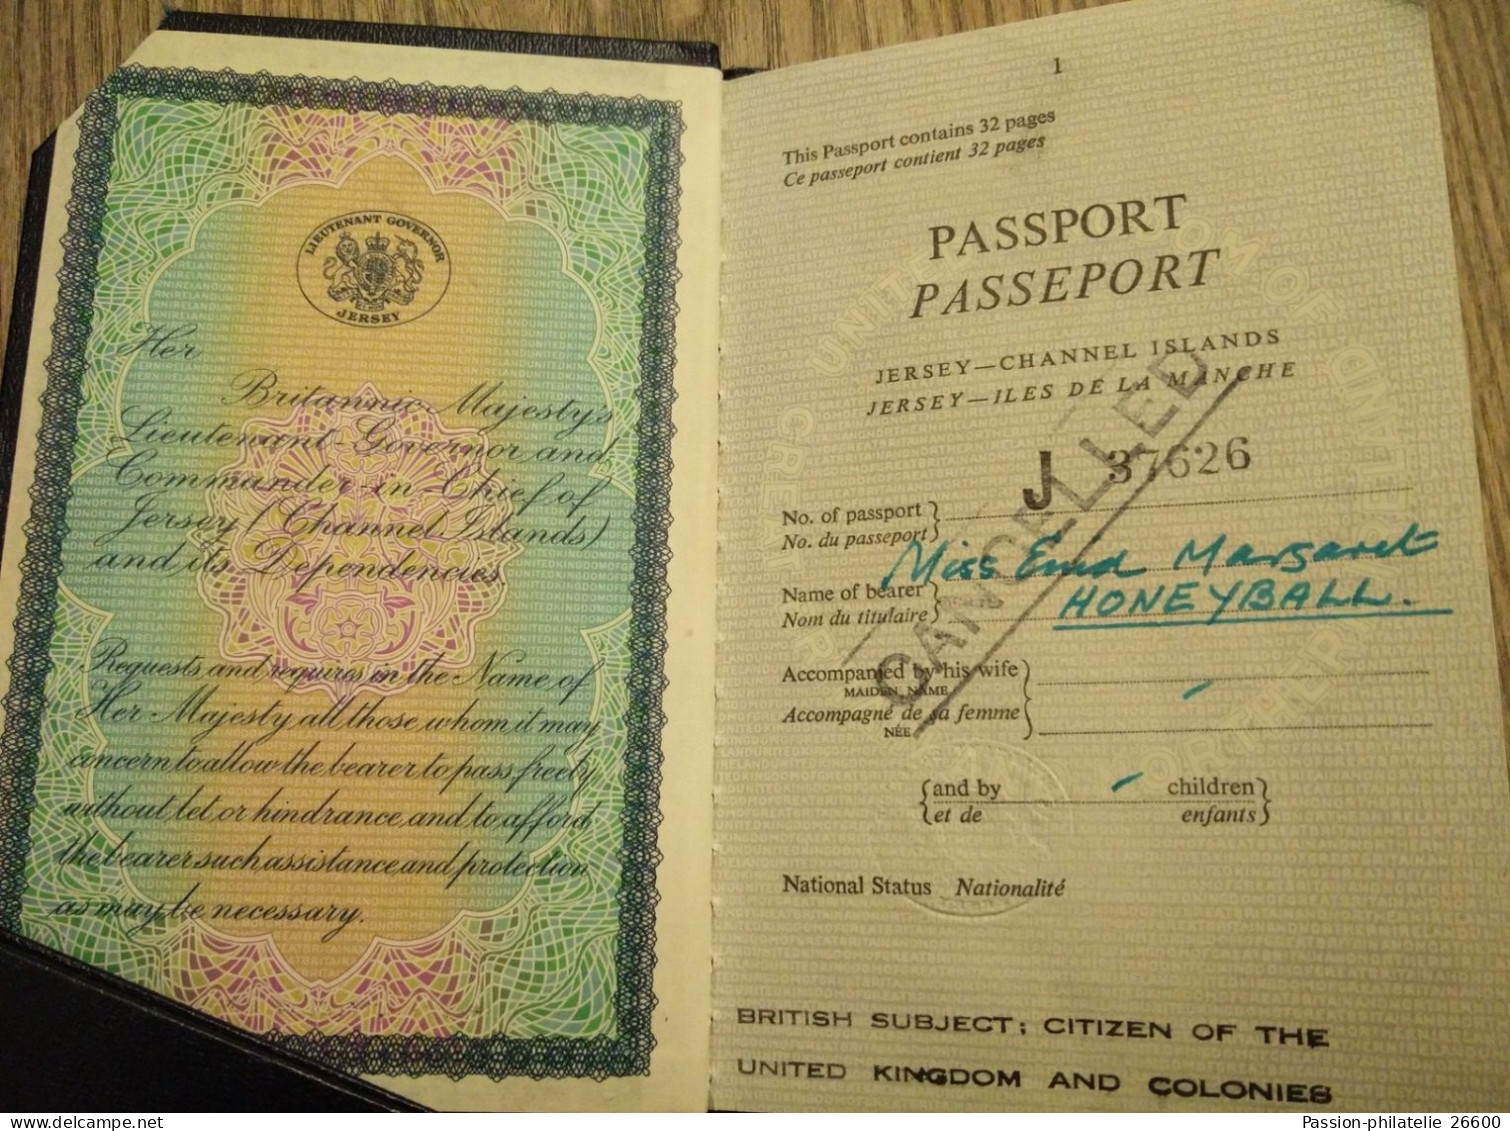 LIEUTENANT GOVERNOR
JERSEY
Her
Britannic Majesty's
Lieutenant-Governor and
Commander-in-Chief of
Jersey (Channel Islands)
and its Dependencies
Requests and requires in the Name of
Her Majesty all those whom it may
concern to allow the bearer to pass freely
without let or hindrance, and to afford
the bearer such assistance and protection
as may be necessary.
1
This Passport contains 32 pages
Ce passeport contient 32 pages
PASSPORT
PASSEPORT
JERSEY—CHANNEL ISLANDS
JERSEY—ILES DE LA MANCHE
CANCELLED
No. of passport J 37626
No. du passeport
Name of bearer Miss Enid Margaret
Nom du titulaire HONEYBALL.
Accompanied by his wife -
MAIDEN NAME
Accompagné de sa femme
NÉE
and by - children
et de enfants
National Status Nationalité
BRITISH SUBJECT; CITIZEN OF THE
UNITED KINGDOM AND COLONIES
Passion-philatelie 26600